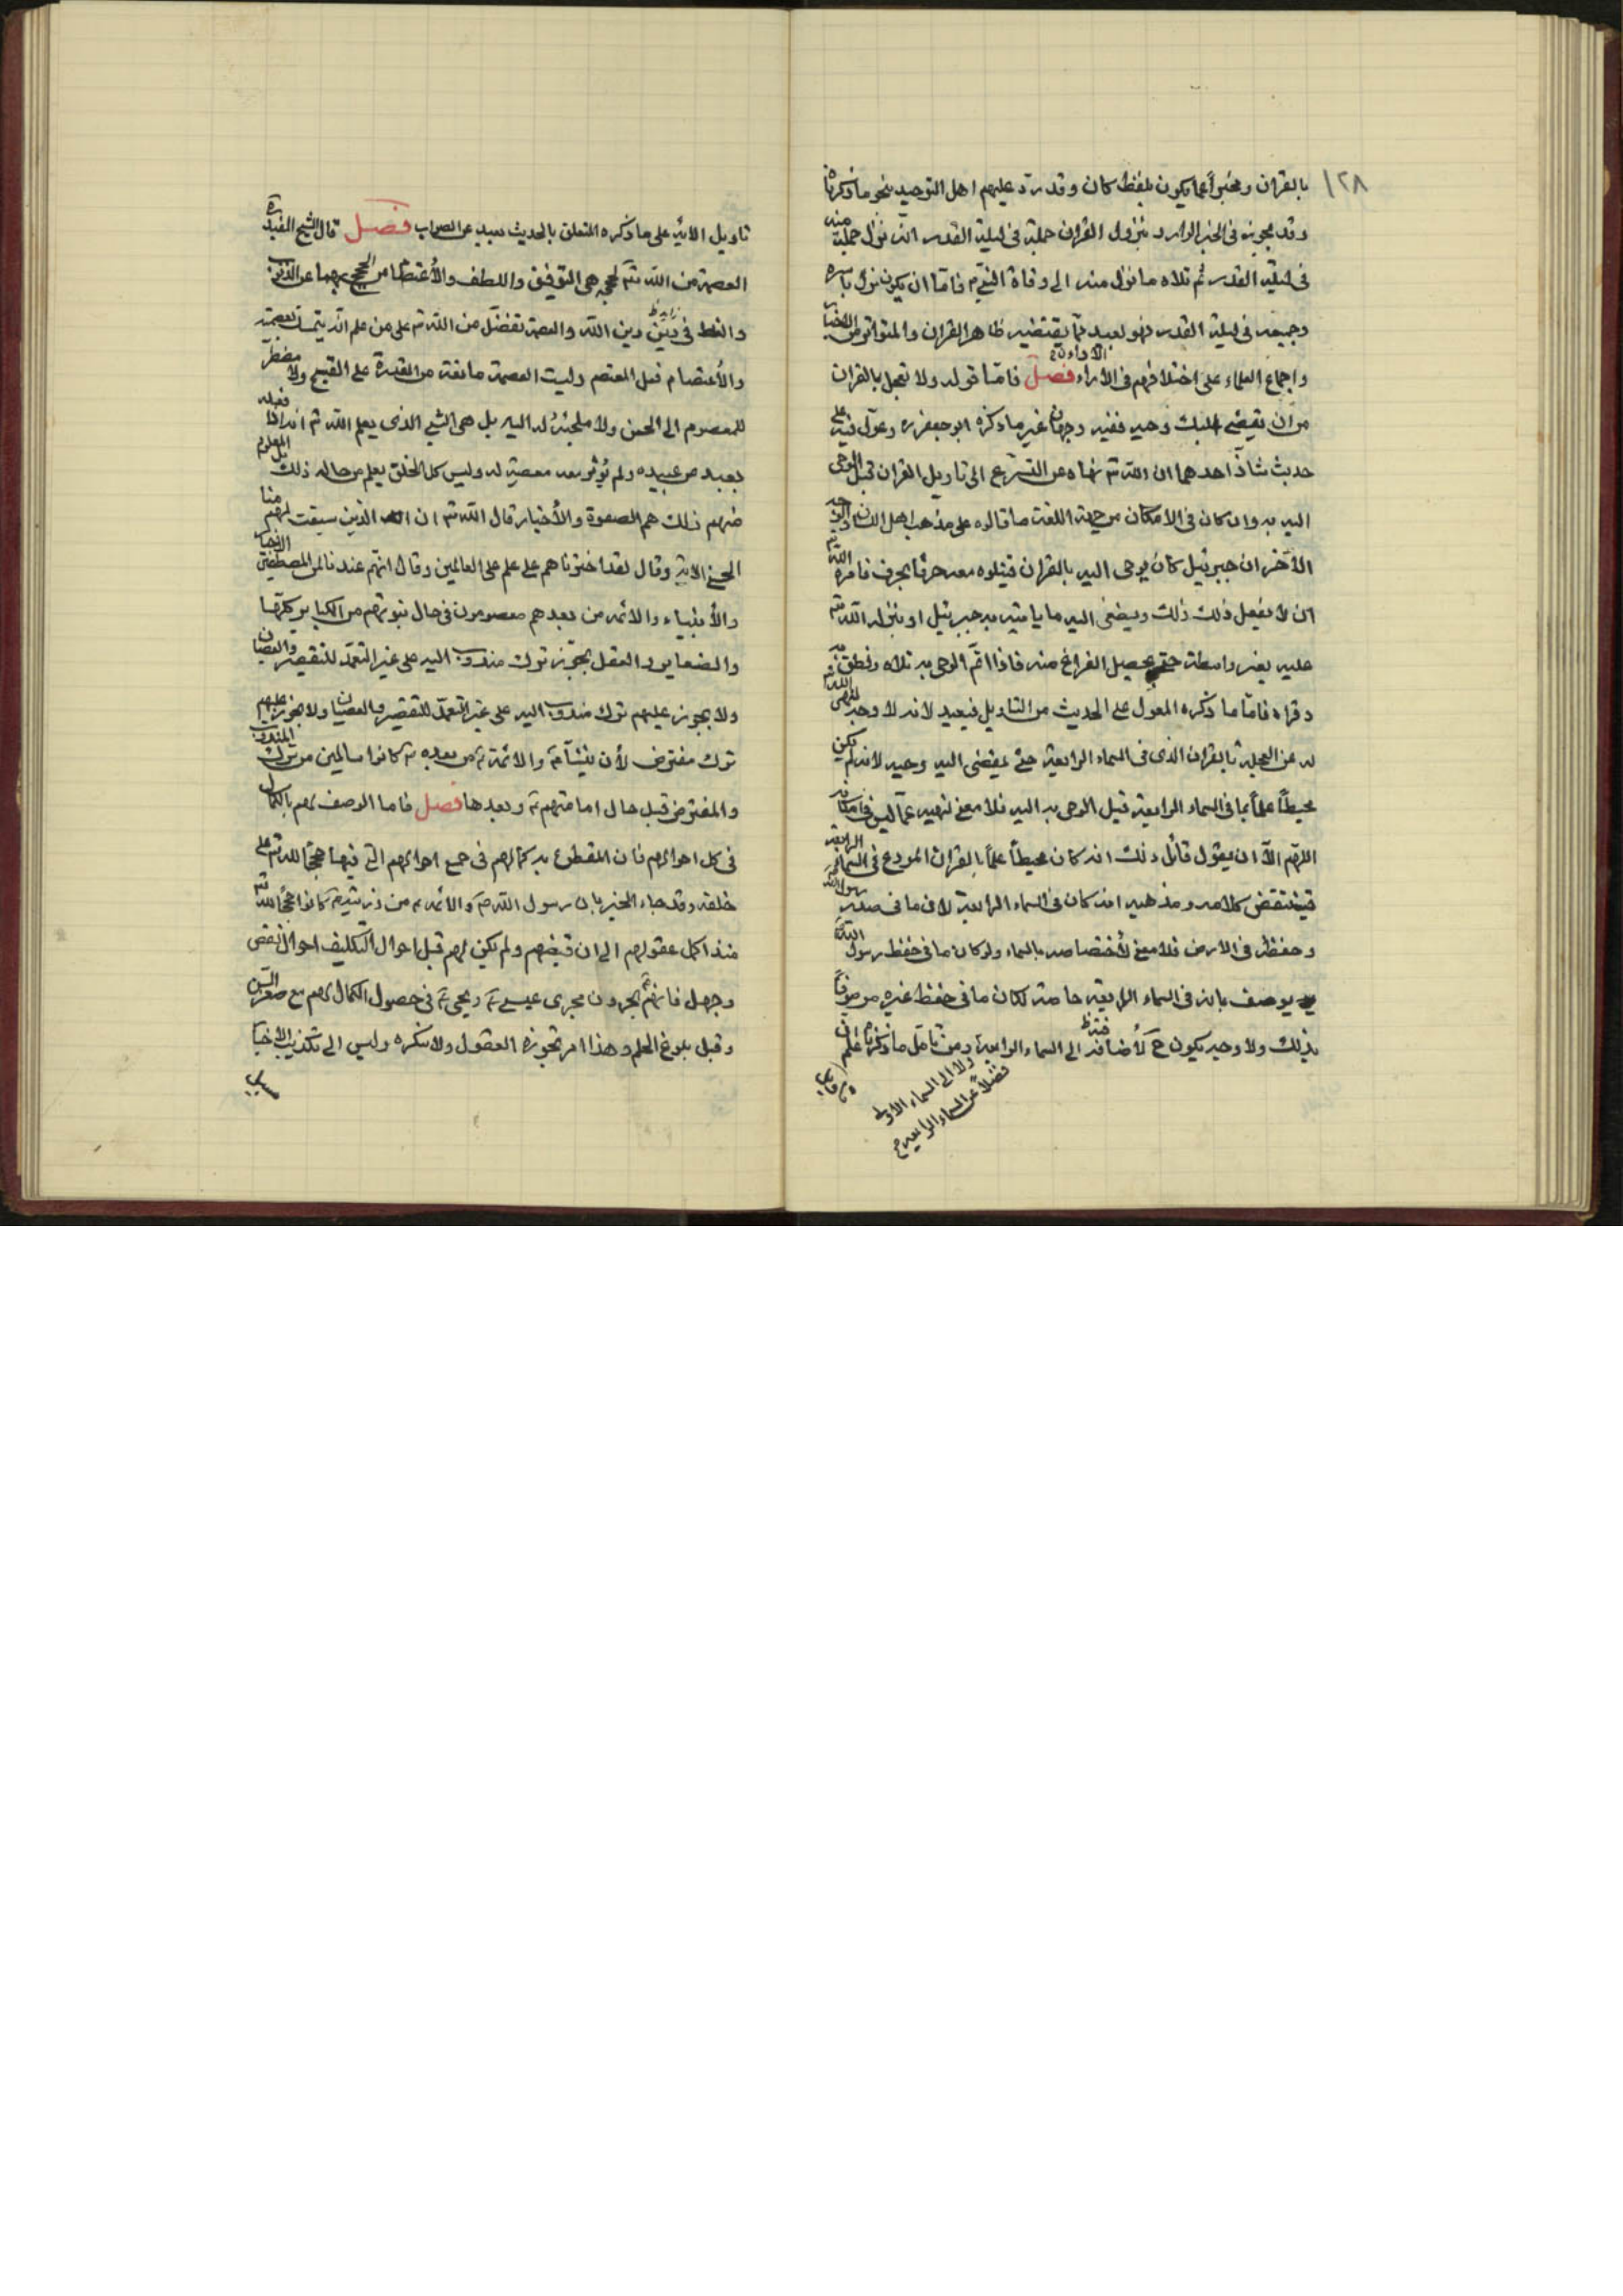 ١٢٨
بالقران ومخبراً عما يكون بلفظ كان وقد رد عليهم اهل التوحيد بنحو ما ذكرناه
وقد يجوز فى الخبر الوارد بنزول القران جملة فى ليلة القدر انه نزل جملة منه
فى ليلة القدر ثم تلاه ما نزل منه الى وفاة النبى ص فاما ان يكون نزل باسره
وجميعه فى ليلة القدر فهو بعيد مما يقتضيه ظاهر القران والمتواتر من الاخبار
واجماع العلماء على اختلافهم فى الاراء فصل فاما قوله ولا تعجل بالقران
من ان يقضى اليك وحيه ففيه وجهان غير ما ذكره ابو جعفر ره وعول فيه على
حديث شاذ احدهما ان الله تع نهاه عن التسرع الى تاويل القران قبل الوحى
اليه به وان كان فى الامكان من جهة اللغة ما قالوه على مذهب اهل اللسان والوجه
الاخر ان جبرئيل كان يوحى اليه بالقران فيتلوه معه حرفا بحرف فامره الله تع
ان لا يفعل ذلك ذلك ويصغى اليه ما ياتيه به جبرئيل او ينزله الله تع
عليه بغير واسطة حتى يحصل الفراغ منه فاذا اتم الوحى به تلاه ونطق به
وقراه فاما ما ذكره المعول على الحديث من التاويل فبعيد لانه لا وجه لنهى الله تع
له عن العجلة بالقران الذى فى السماء الرابعة حتى يقضى اليه وحيه لانه لم يكن
محيطاً علماً بما فى السماء الرابعة قبل الوحى به اليه فلا معنى لنهيه عما ليس فى امكانه
اللهم الا ان يقول قائل ذلك انه كان محيطاً علماً بالقران المودع فى السماء الرابعة
فينتقض كلامه ومذهبه انه كان فى السماء الرابعة لان ما فى صدر رسول الله
وحفظه فى الارض فلا معنى لأختصاصه بالسماء ولو كان ما فى حفظ رسول الله
يوصف بانه فى السماء الرابعة خاصة لكان ما فى حفظ غيره موصوفاً
بذلك ولا وجه يكون ح لأضافته الى السماء الرابعة ومن تامل ما ذكرناه علم ان
ولا الى السماء الاولى
فضلاً عن السماء الرابعة
تاويل الاية على ما ذكره المتعلق بالحديث بعيد عن الصواب فصل قال الشيخ المفيد ره
العصمة من الله تع لحججه هى التوفيق واللطف والأعتصام من الحجج بهما عن الذنوب
والغلط فى دين الله والعصمة تفضل من الله تع على من علم انه يتمسك بعصمته
والأعتصام فعل المعتصم وليست العصمة مانعة من القدرة على القبيح ولا مضطرة
للمعصوم الى الحسن ولا ملجئةً له اليه بل هى الشى الذى يعلم الله تع انه اذا فعله
بعبد من عبيده ولم يُؤثر معه معصية له وليس كل الخلق يعلم من حاله ذلك بل المعلوم
منهم ذلك هم الصفوة والأخيار قال الله تع ان الذين سبقت لهم منا
الحسنى الاية وقال لقد اخترناهم على علم على العالمين وقال انهم عندنا لمن المصطفين الاخيار
والأنبياء والائمه من بعدهم معصومون فى حال نبوتهم من الكبائر كلها
والصغاير والعقل يجوز ترك مندوب اليه على غير التعمد للتقصير والعصيان
ولا يجوز عليهم ترك مندوب اليه على غير التعمد للتقصير والعصيان ولا يجوز عليهم
ترك مفترض لأن نبينا ص والائمة ع من بعده ع كانوا سالمين من ترك المندوب
والمفترض قبل حال امامتهم ع وبعدها فصل فاما الوصف لهم بالكمال
فى كل احوالهم فان المقطوع به كمالهم فى جميع احوالهم التى فيها حججاً لله تع على
خلقه وقد جاء الخبر بان رسول الله ص والائمه ع من ذريته ع كانوا حججاً لله تع
منذ اكمل عقولهم الى ان قبضهم ولم يكن لهم قبل احوال التكليف احوال نقص
وجهل فانهم يجرون مجرى عيسى ع ويحيى ع فى حصول الكمال لهم مع صغر السن
وقبل بلوغ الحلم وهذا امر تجوزه العقول ولا تنكره وليس الى تكذيب الاخبار
سبيل